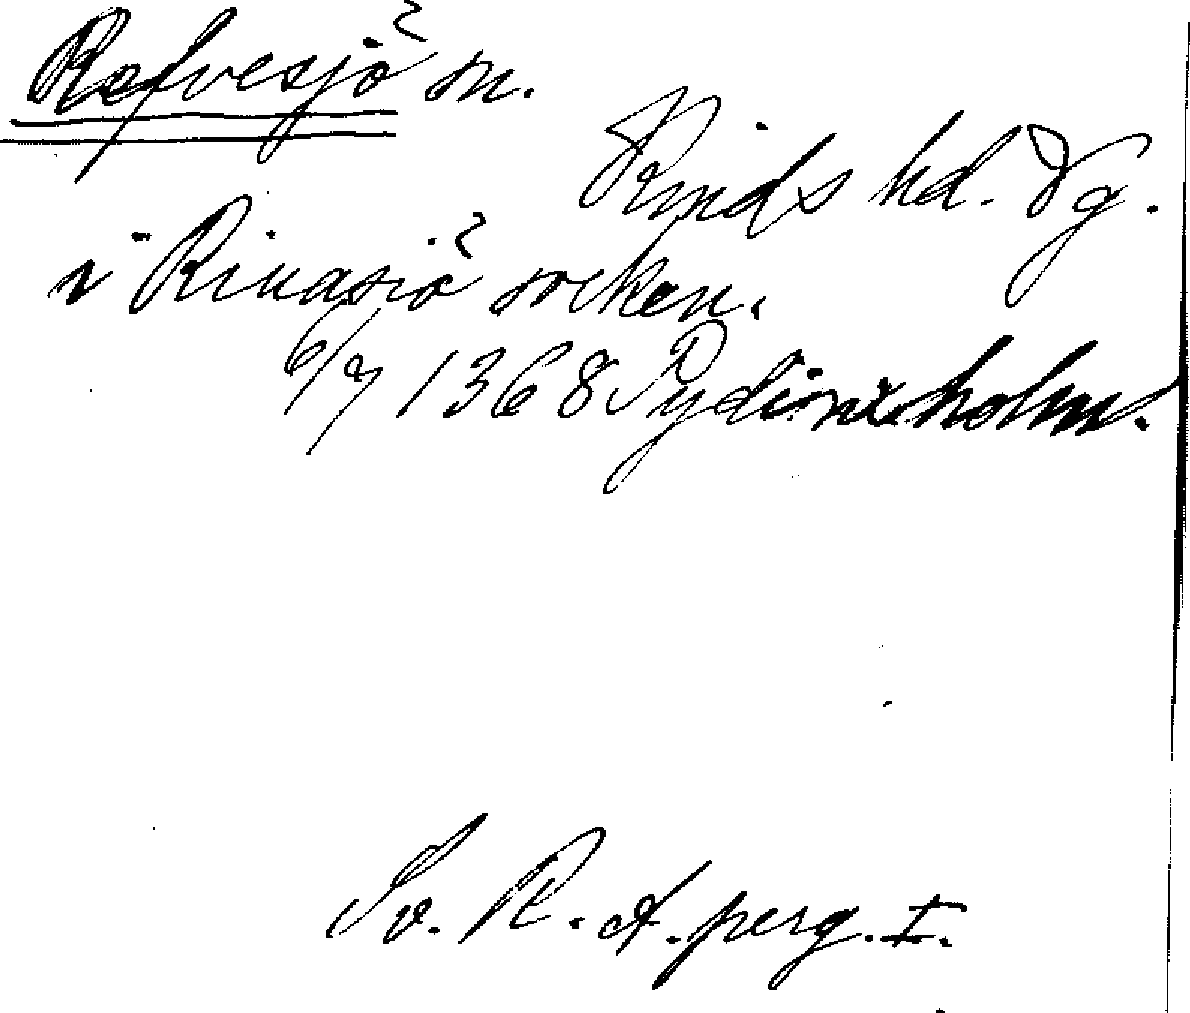 Refvesjö sn.
Kinds hd. Vg.
i Riuasiö socken.
6/7 1368 Pydinxholm.
Sv. R. A. perg. I.